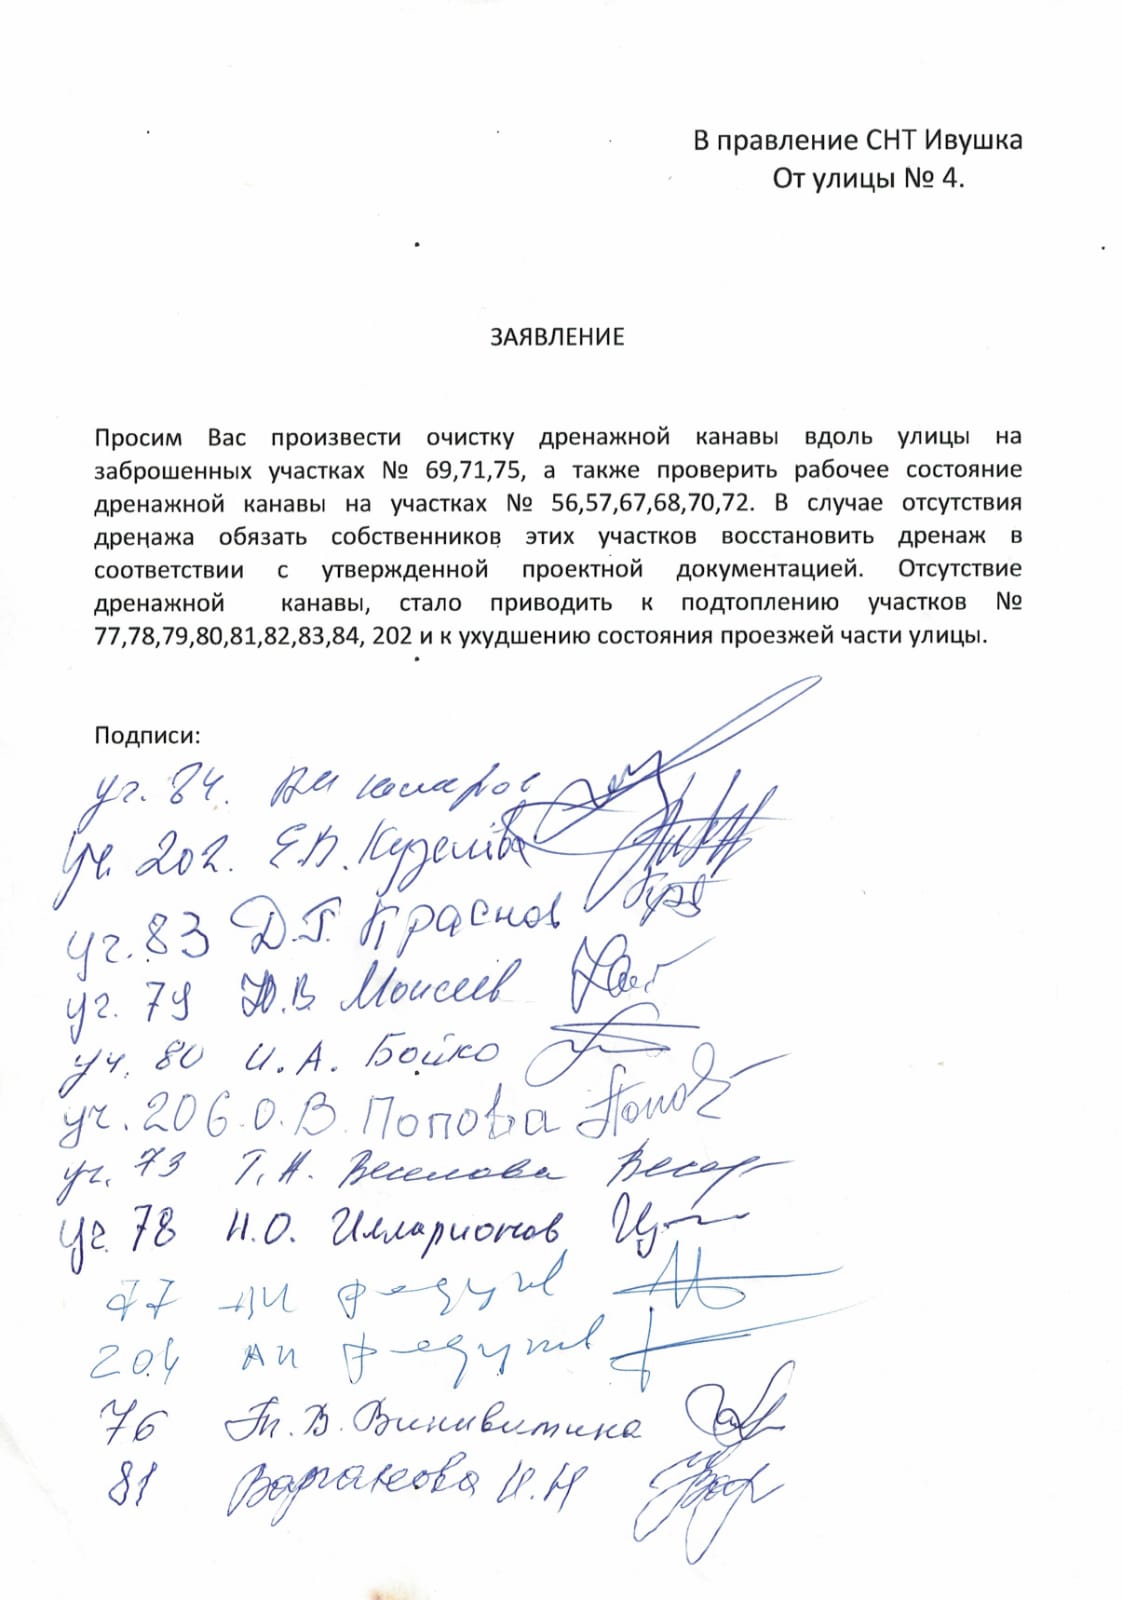 В правление СНТ Ивушка
От улицы № 4.
ЗАЯВЛЕНИЕ
Просим Вас произвести очистку дренажной канавы вдоль улицы на
заброшенных участках № 69,71,75, а также проверить рабочее состояние
дренажной канавы на участках № 56,57,67,68,70,72. В случае отсутствия
дренажа обязать собственников этих участков восстановить дренаж в
соответствии с утвержденной проектной документацией. Отсутствие
дренажной канавы, стало приводить к подтоплению участков №
77,78,79,80,81,82,83,84, 202 и к ухудшению состояния проезжей части улицы.
Подписи:
уч. 84.
уч. 202. Е.В.
уч. 83 Д.Г. Краснов
уч. 79 Ю.В. Моисеев
уч. 80 И.А. Бойко
уч. 206 О.В. Попова
уч. 73 Т.Н. Веселова
уч. 78 Н.О. Илларионов
77
204 АИ
76
81 И.Н